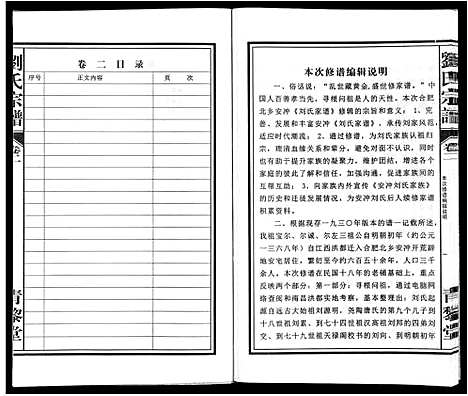 劉氏宗譜
卷二
本次修谱编辑说明
青黎堂
本次修谱编辑说明
一、俗话说："乱世藏黄金,盛世修家谱。"中
国人百善孝当先，寻根问祖是人的天性。本次合肥
北乡安冲《刘氏家谱》修辑的宗旨和意义：1、完
善、发展和丰富安冲《刘氏家谱》，承传刘家风范
适应时代潮流；2、通过修谱，为刘氏家族认祖归
宗、理清血缘关系和辈分，避免对面不认识，同时
也有助于提升家族的凝聚力。维护团结，增进各个
世居地的家族之间的了解和信任，加强沟通，促进家族间的
互相互助；3、向家族内外宣传《安冲刘氏家族》
的历史和迁徙发展情况，为安冲刘氏后人续修家谱
积累资料。
二、根据现存一九三〇年版本的谱一记载所述，
我祖宝尔、尔诚、尔左三祖公自明朝初年（约公元
一三六八年）自江西洪都迁入合肥北乡安冲开荒辟
地安宅居住，繁衍至今约六百五十余年，人口三千
余人。本次修谱在民国十八年的老硕基础上，重点
反映两个部分：第一部分：寻根问祖，通过电脑网
络查阅和南昌洪都实地考察，基本整理出：刘氏起
源自远古大始祖刘源明，尧陶唐氏的第九个儿子到
十八世始祖刘累、到七十四世祖汉高祖刘邦的四弟刘
交、到一百五十世祖天禄阁校书的刘向、到明朝初年
卷二目录
序号 正文内容 页次
劉氏宗譜
卷二
青黎堂